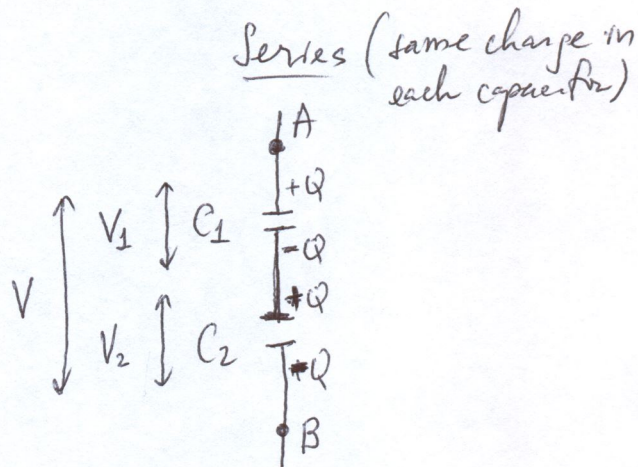 Series (same charge in
each capacitor)
A
+Q
V₁ C₁
-Q
V
+Q
V₂ C₂
Q
B